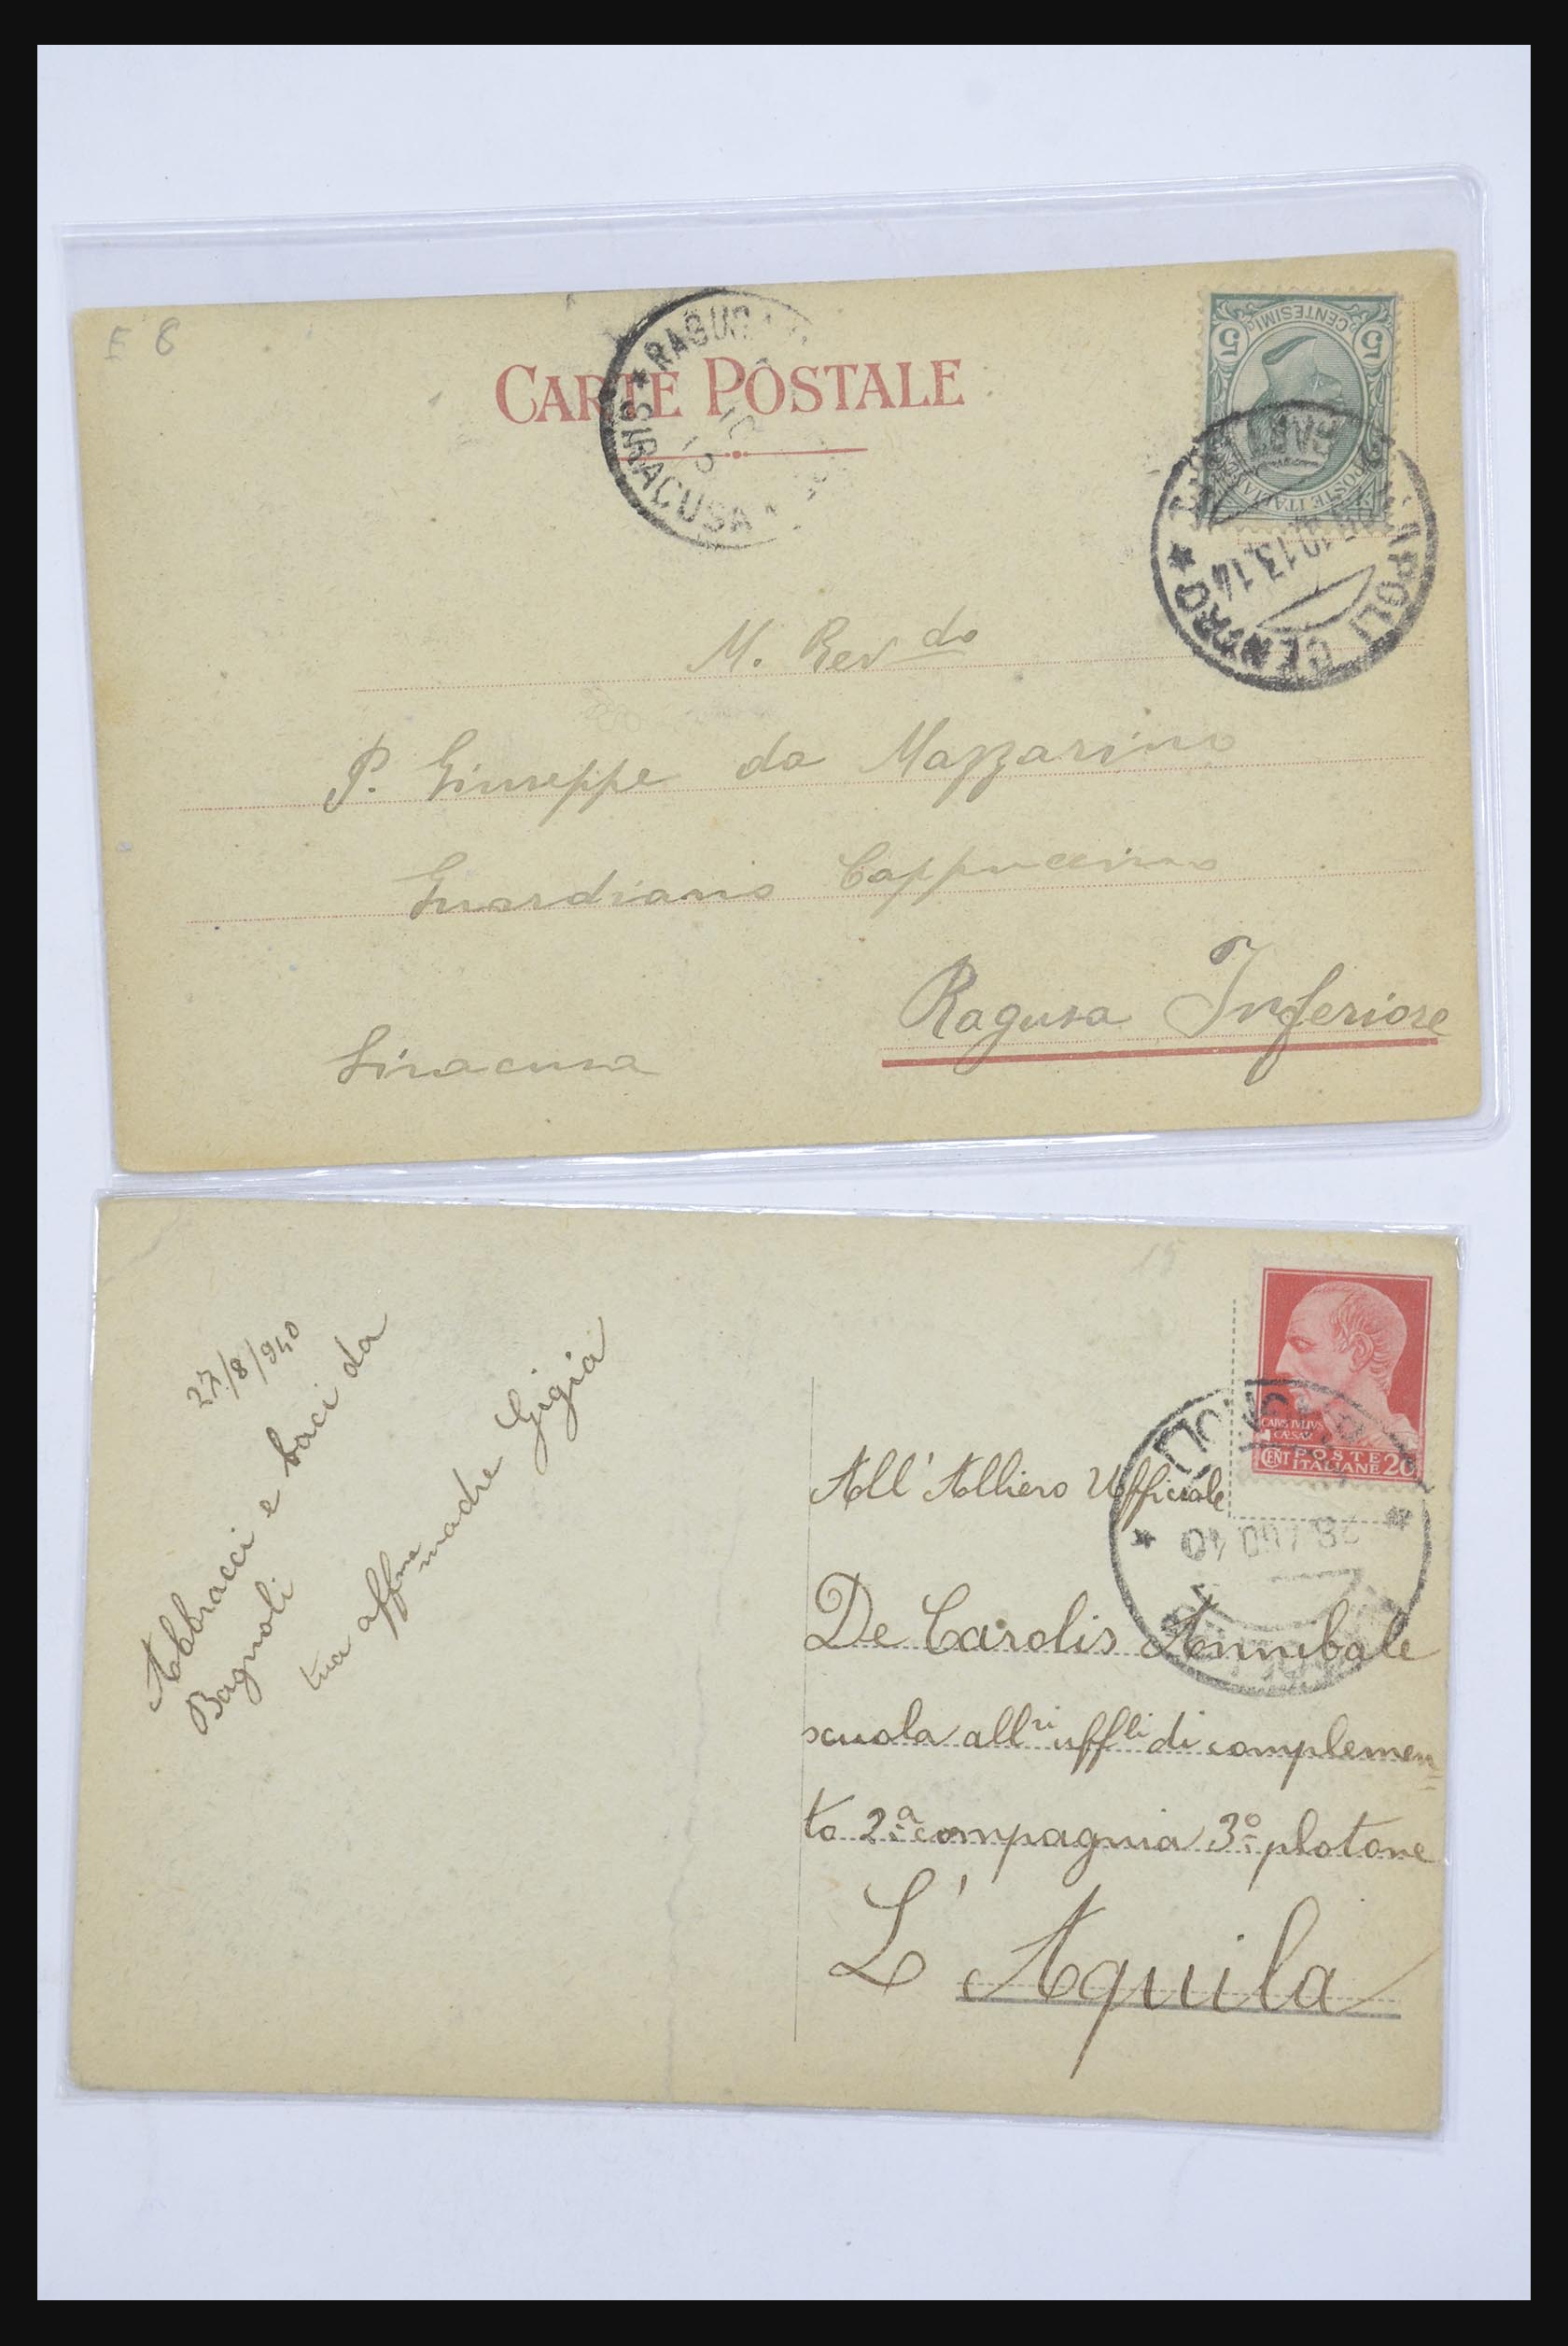 E 8
SIRACUSA
CARTE POSTALE
5 5
CENTESIMI
POSTE ITALIANE
CENTRO
10.13.14
M. Rev do
P. Giuseppe da Mazzarino
Guardiano Cappuccino
Ragusa Inferiore
Siracusa
15
27/8/940
Abbracci e baci da
Bagnoli
tua affma madre Gigia
CAIVS IVLIVS
CÆSAR
CENT POSTE ITALIANE 20
28 AGO 40
All' Allievo Ufficiale
De Carolis Annibale
scuola allvi uffli di complemen=
to 2a compagnia 3o plotone
L' Aquila